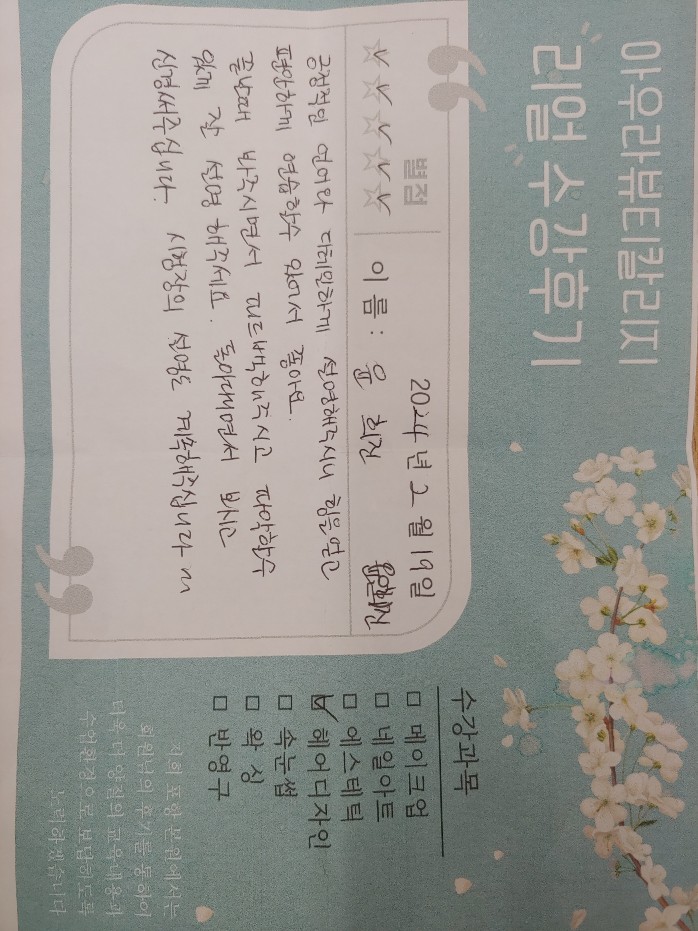 아우라뷰티칼리지
리얼 수강후기
별점
2024년 2월 19일
이름: 윤희진
긍정적인 언어와 디테일하게 설명해주시니 힘을얻고
편안하게 연습할수 있어서 좋아요.
끝날때 봐주시면서 피드백해주시고 파악할수
있게 잘 설명해주세요. 돌아다니면서 보시고
신경써주십니다. 시험장의 설명도 계속해주십니다~
수강과목
□ 메이크업
□ 네일아트
□ 에스테틱
☑ 헤어디자인
□ 속눈썹
□ 왁싱
□ 반영구
저희 포항 본원에서는
회원님의 후기를 통하여
더욱 더 양질의 교육내용과
수업환경으로 보답하도록
노력하겠습니다